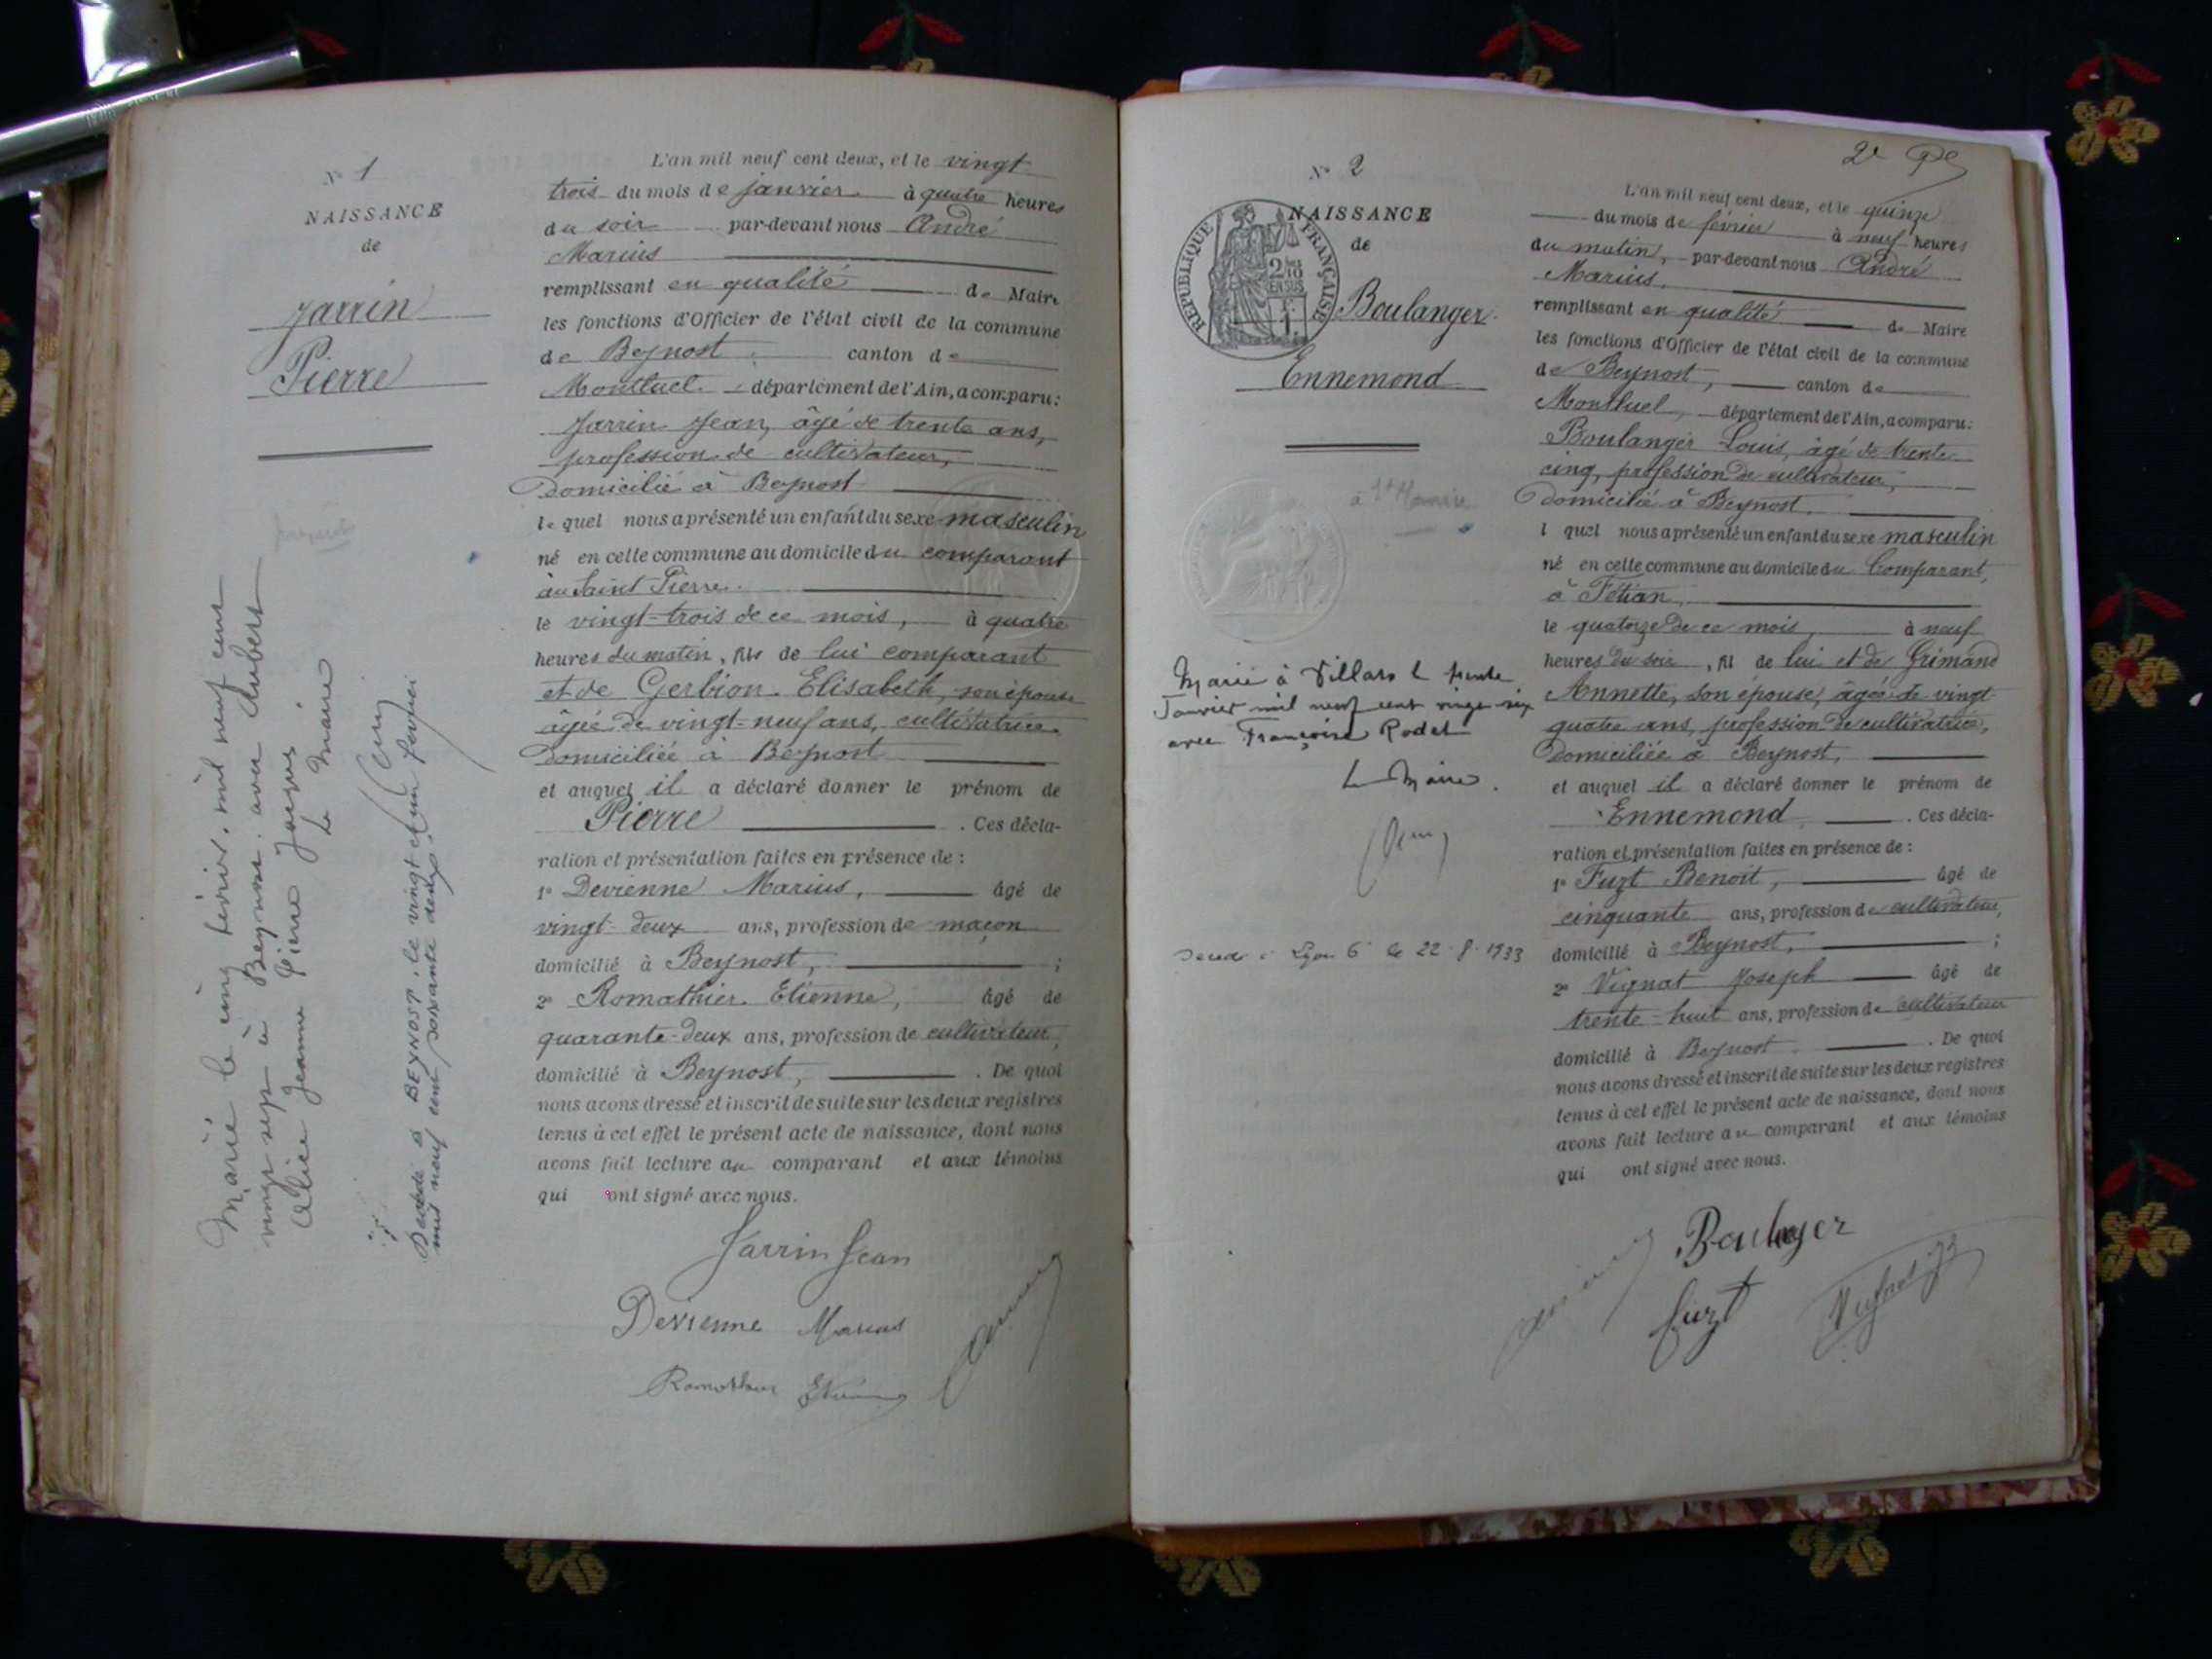 N° 1
NAISSANCE
de
Jarrin
Pierre
Marié le cinq février mil neuf cent
vingt sept à Beynost avec Aubert
Alice Jeanne Pierre Jacques
Le Maire
Décédé à BEYNOST, le vingt et un janvier
mil neuf cent soixante deux.
L'an mil neuf cent deux, et le vingt
trois du mois de janvier à quatre heures
du soir par-devant nous André
Marius
remplissant en qualité de Maire
les fonctions d'Officier de l'état civil de la commune
de Beynost canton de
Montluel département de l'Ain, a comparu:
Jarrin Jean, âgé de trente ans,
profession de cultivateur,
Domicilié à Beynost
lequel nous a présenté un enfant du sexe masculin
né en cette commune au domicile du comparant
au Saint-Pierre.
le vingt-trois de ce mois, à quatre
heures du matin, fils de lui comparant
et de Gerbion Elisabeth, son épouse
âgée de vingt-neuf ans, cultivatrice
Domiciliée à Beynost
et auquel il a déclaré donner le prénom de
Pierre . Ces décla-
ration et présentation faites en présence de :
1° Devienne Marius, âgé de
vingt-deux ans, profession de maçon
domicilié à Beynost, ;
2° Romathier Etienne, âgé de
quarante-deux ans, profession de cultivateur,
domicilié à Beynost, . De quoi
nous avons dressé et inscrit de suite sur les deux registres
tenus à cet effet le présent acte de naissance, dont nous
avons fait lecture au comparant et aux témoins
qui ont signé avec nous.
Jarrin Jean
Devienne Marius
Romathier Etienne
2e
N° 2
NAISSANCE
de
RÉPUBLIQUE FRANÇAISE
Boulanger
Ennemond
Marié à Villars le trente
Janvier mil neuf cent vingt-six
avec Françoise Rodet
Le Maire
Décédé à Lyon 6 le 22-8-1933
L'an mil neuf cent deux, et le quinze
du mois de février à neuf heures
du matin, par-devant nous André
Marius,
remplissant en qualité de Maire
les fonctions d'Officier de l'état civil de la commune
de Beynost, canton de
Montluel, département de l'Ain, a comparu:
Boulanger Louis, âgé de trente
cinq, profession de cultivateur,
Domicilié à Beynost.
l quel nous a présenté un enfant du sexe masculin
né en cette commune au domicile du Comparant,
à Fétian,
le quatorze de ce mois, à neuf
heures du soir, fil de lui et de Grimand
Annette, son épouse, âgée de vingt-
quatre ans, profession de cultivatrice,
Domiciliée à Beynost,
et auquel il a déclaré donner le prénom de
Ennemond . Ces décla-
ration et présentation faites en présence de :
1° Fuzt Benoit, âgé de
cinquante ans, profession de cultivateur,
domicilié à Beynost, ;
2° Vignat Joseph âgé de
trente-huit ans, profession de cultivateur
domicilié à Beynost . De quoi
nous avons dressé et inscrit de suite sur les deux registres
tenus à cet effet le présent acte de naissance, dont nous
avons fait lecture au comparant et aux témoins
qui ont signé avec nous.
Boulanger
Fuzt